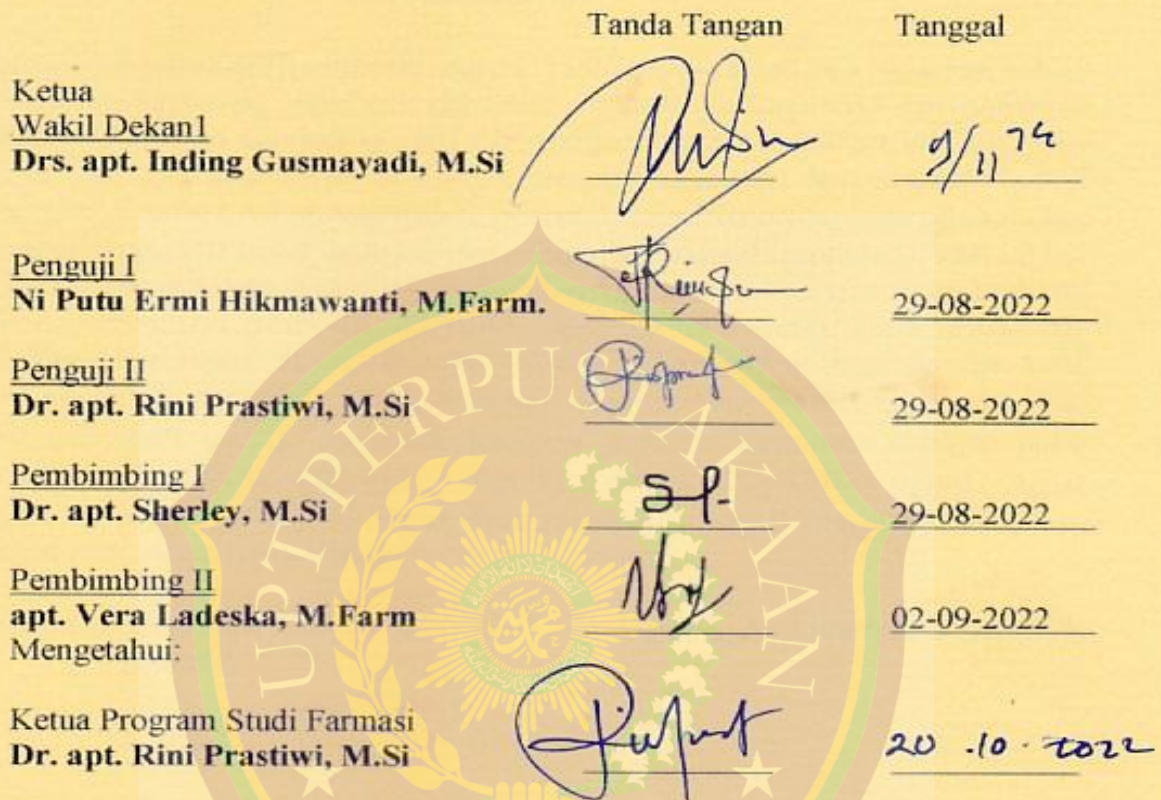 Tanda Tangan Tanggal
Ketua
Wakil Dekan1
Drs. apt. Inding Gusmayadi, M.Si
Penguji I
Ni Putu Ermi Hikmawanti, M.Farm. 29-08-2022
Penguji II
Dr. apt. Rini Prastiwi, M.Si 29-08-2022
Pembimbing I
Dr. apt. Sherley, M.Si 29-08-2022
Pembimbing II
apt. Vera Ladeska, M.Farm 02-09-2022
Mengetahui:
Ketua Program Studi Farmasi
Dr. apt. Rini Prastiwi, M.Si 20 .10. 2022
UPT PERPUSTAKAAN